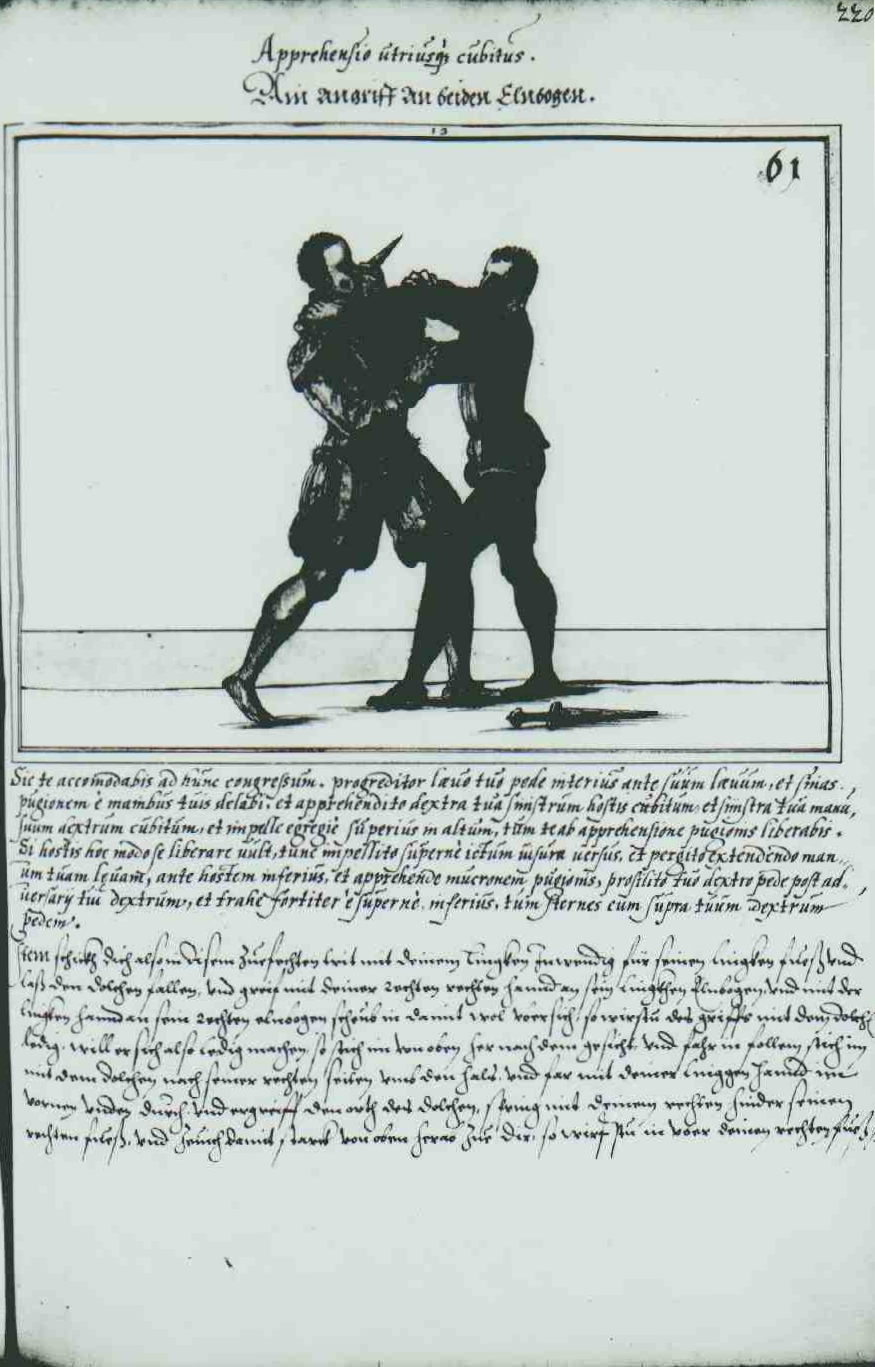 220
Apprehensio utriusq; cubitus.
Ain angriff an beiden Elnbogen.
13
61
Sic te accom̄odabis ad hunc congressum. progreditor læuo tuo pede interius ante suum læuum, et sinas
pugionem è manibus tuis delabi. et apprehendito dextra tua sinistrum hostis cubitum, et sinistra tua manu,
suum dextrum cubitum, et impelle egregiè superius in altum, tum te ab apprehensione pugionis liberabis.
Si hostis hoc modo se liberare uult, tunc impellito supernè ictum uersus, et pergito extendendo man
um tuam lęuam, ante hostem inferius, et apprehende mucronem pugionis, prosilito tuo dextro pede post ad
uersarij tui dextrum, et trahe fortiter è supernè inferius, tum sternes eum supra tuum dextrum
pedem.
Item schickh dich also in disem Zuefechten trit mit deinem Lingken Inwendig für seinen lingken fuesß vnd
lasß den dolchen fallen, vnd greif mit deiner rechten hannd an sein lingkhen Elnbogen, vnd mit der
lingken hannd an sein rechten elnbogen scheub in damit wol vbersich, so wirstu des griffs mit dem dolch
ledig. will er sich also ledig machen, so stich im von oben her nach dem gesicht, vnd fahr in follem stich im
mit dem dolchen nach seiner rechten seiten vmb den hals, vnd far mit deiner linggen hannd im
vornen vnden durch, vnd ergreiff den orth des dolchen, spring mit deinem rechten hinder seinen
rechten fuesß, vnd damit starck von oben herab zue dir, so wirfstu in vber deinen rechten fuesß